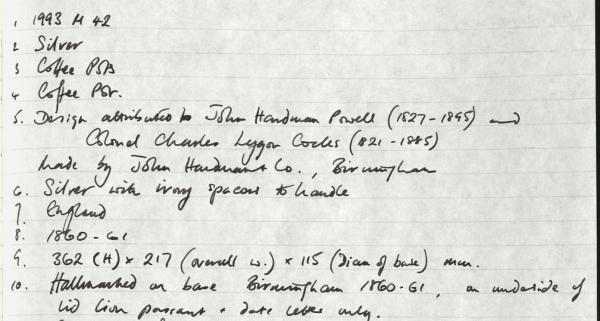 1 1993 M 42
2 Silver
3 Coffee Pots
4 Coffee Pot.
5. Design attributed to John Hardman Powell (1827-1895) and
Colonel Charles Lygon Cocks (1821-1885)
Made by John Hardman & Co., Birmingham
6. Silver with ivory spacers to handle
7. England
8. 1860-61
9. 362 (H) x 217 (overall w.) x 115 (Diam of base) mm.
10. Hallmarked on base Birmingham 1860-61, on underside of
lid lion passant + date letter only.